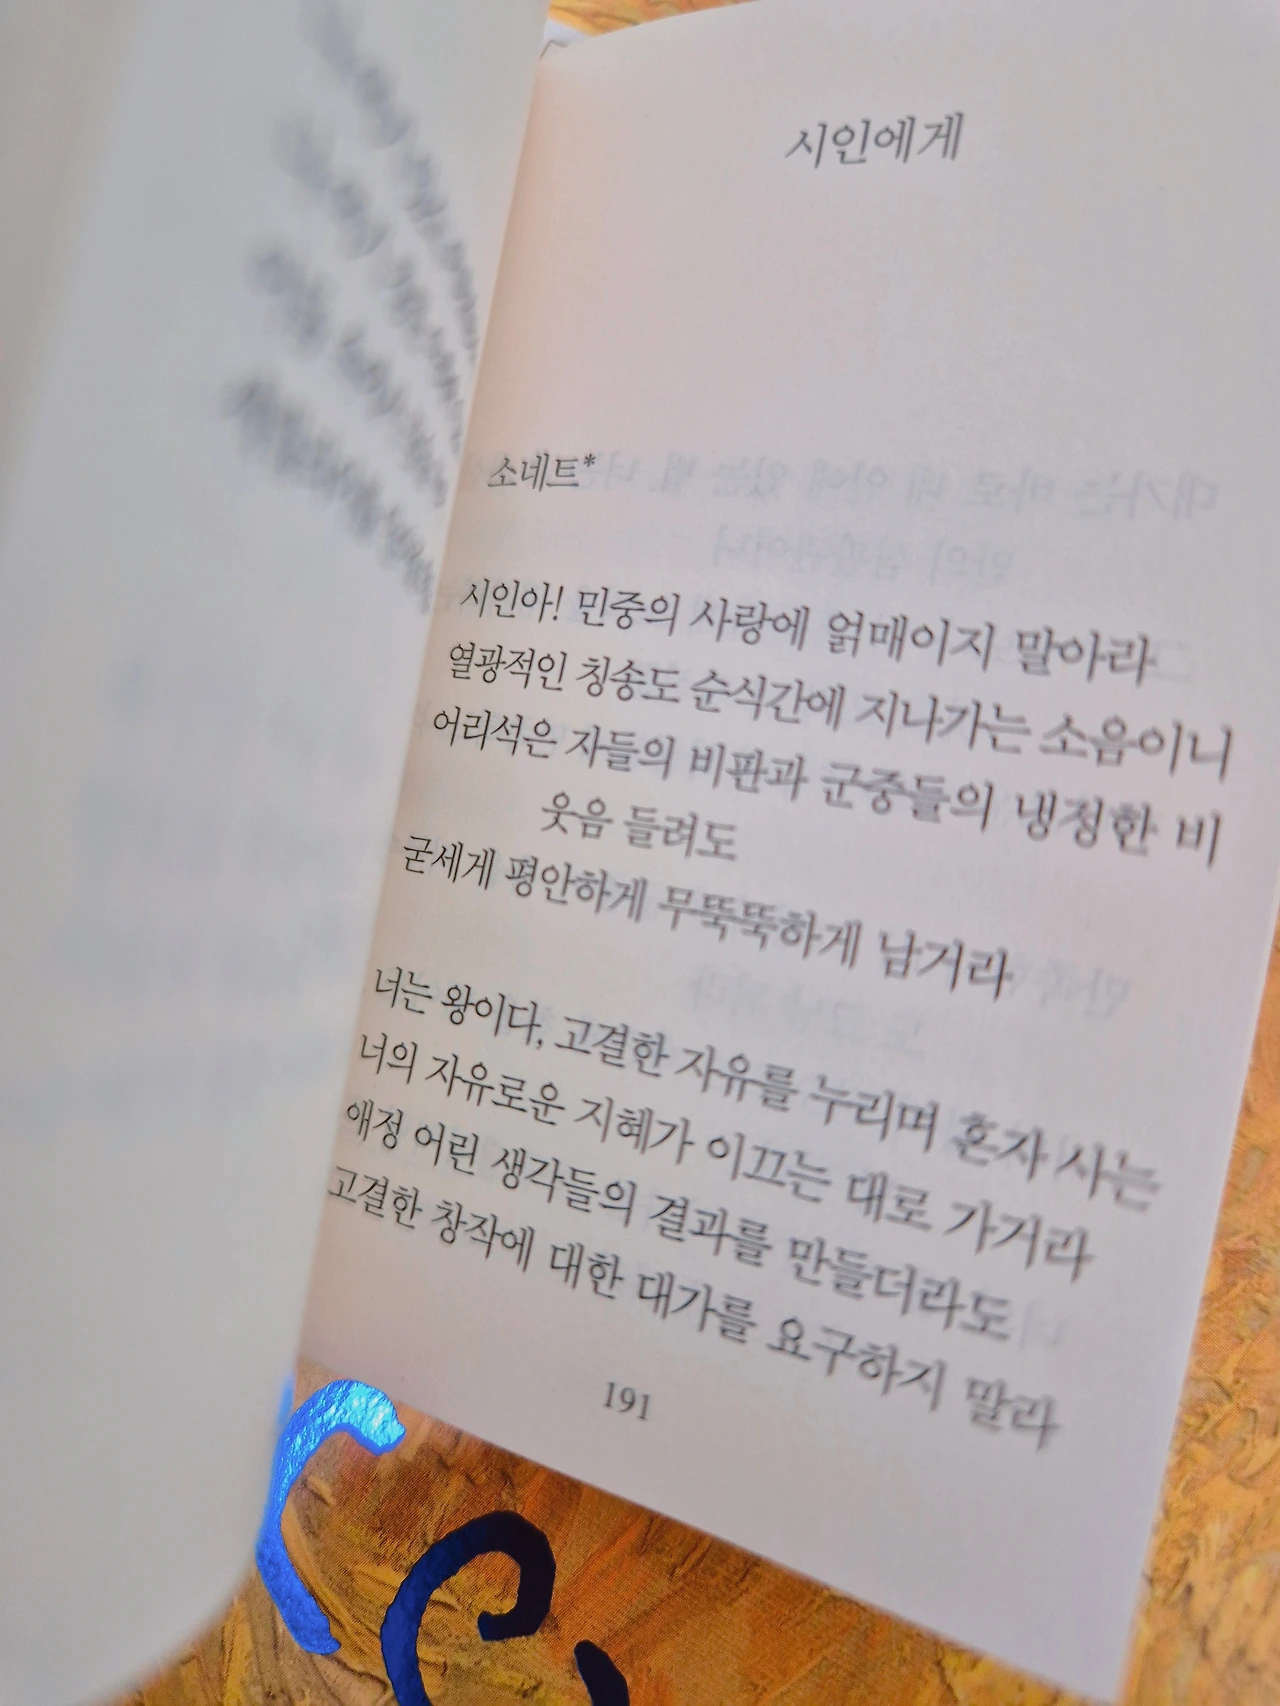 시인에게
소네트*
시인아! 민중의 사랑에 얽매이지 말아라
열광적인 칭송도 순식간에 지나가는 소음이니
어리석은 자들의 비판과 군중들의 냉정한 비
웃음 들려도
굳세게 평안하게 무뚝뚝하게 남거라
너는 왕이다, 고결한 자유를 누리며 혼자 사는
너의 자유로운 지혜가 이끄는 대로 가거라
애정 어린 생각들의 결과를 만들더라도
고결한 창작에 대한 대가를 요구하지 말라
191